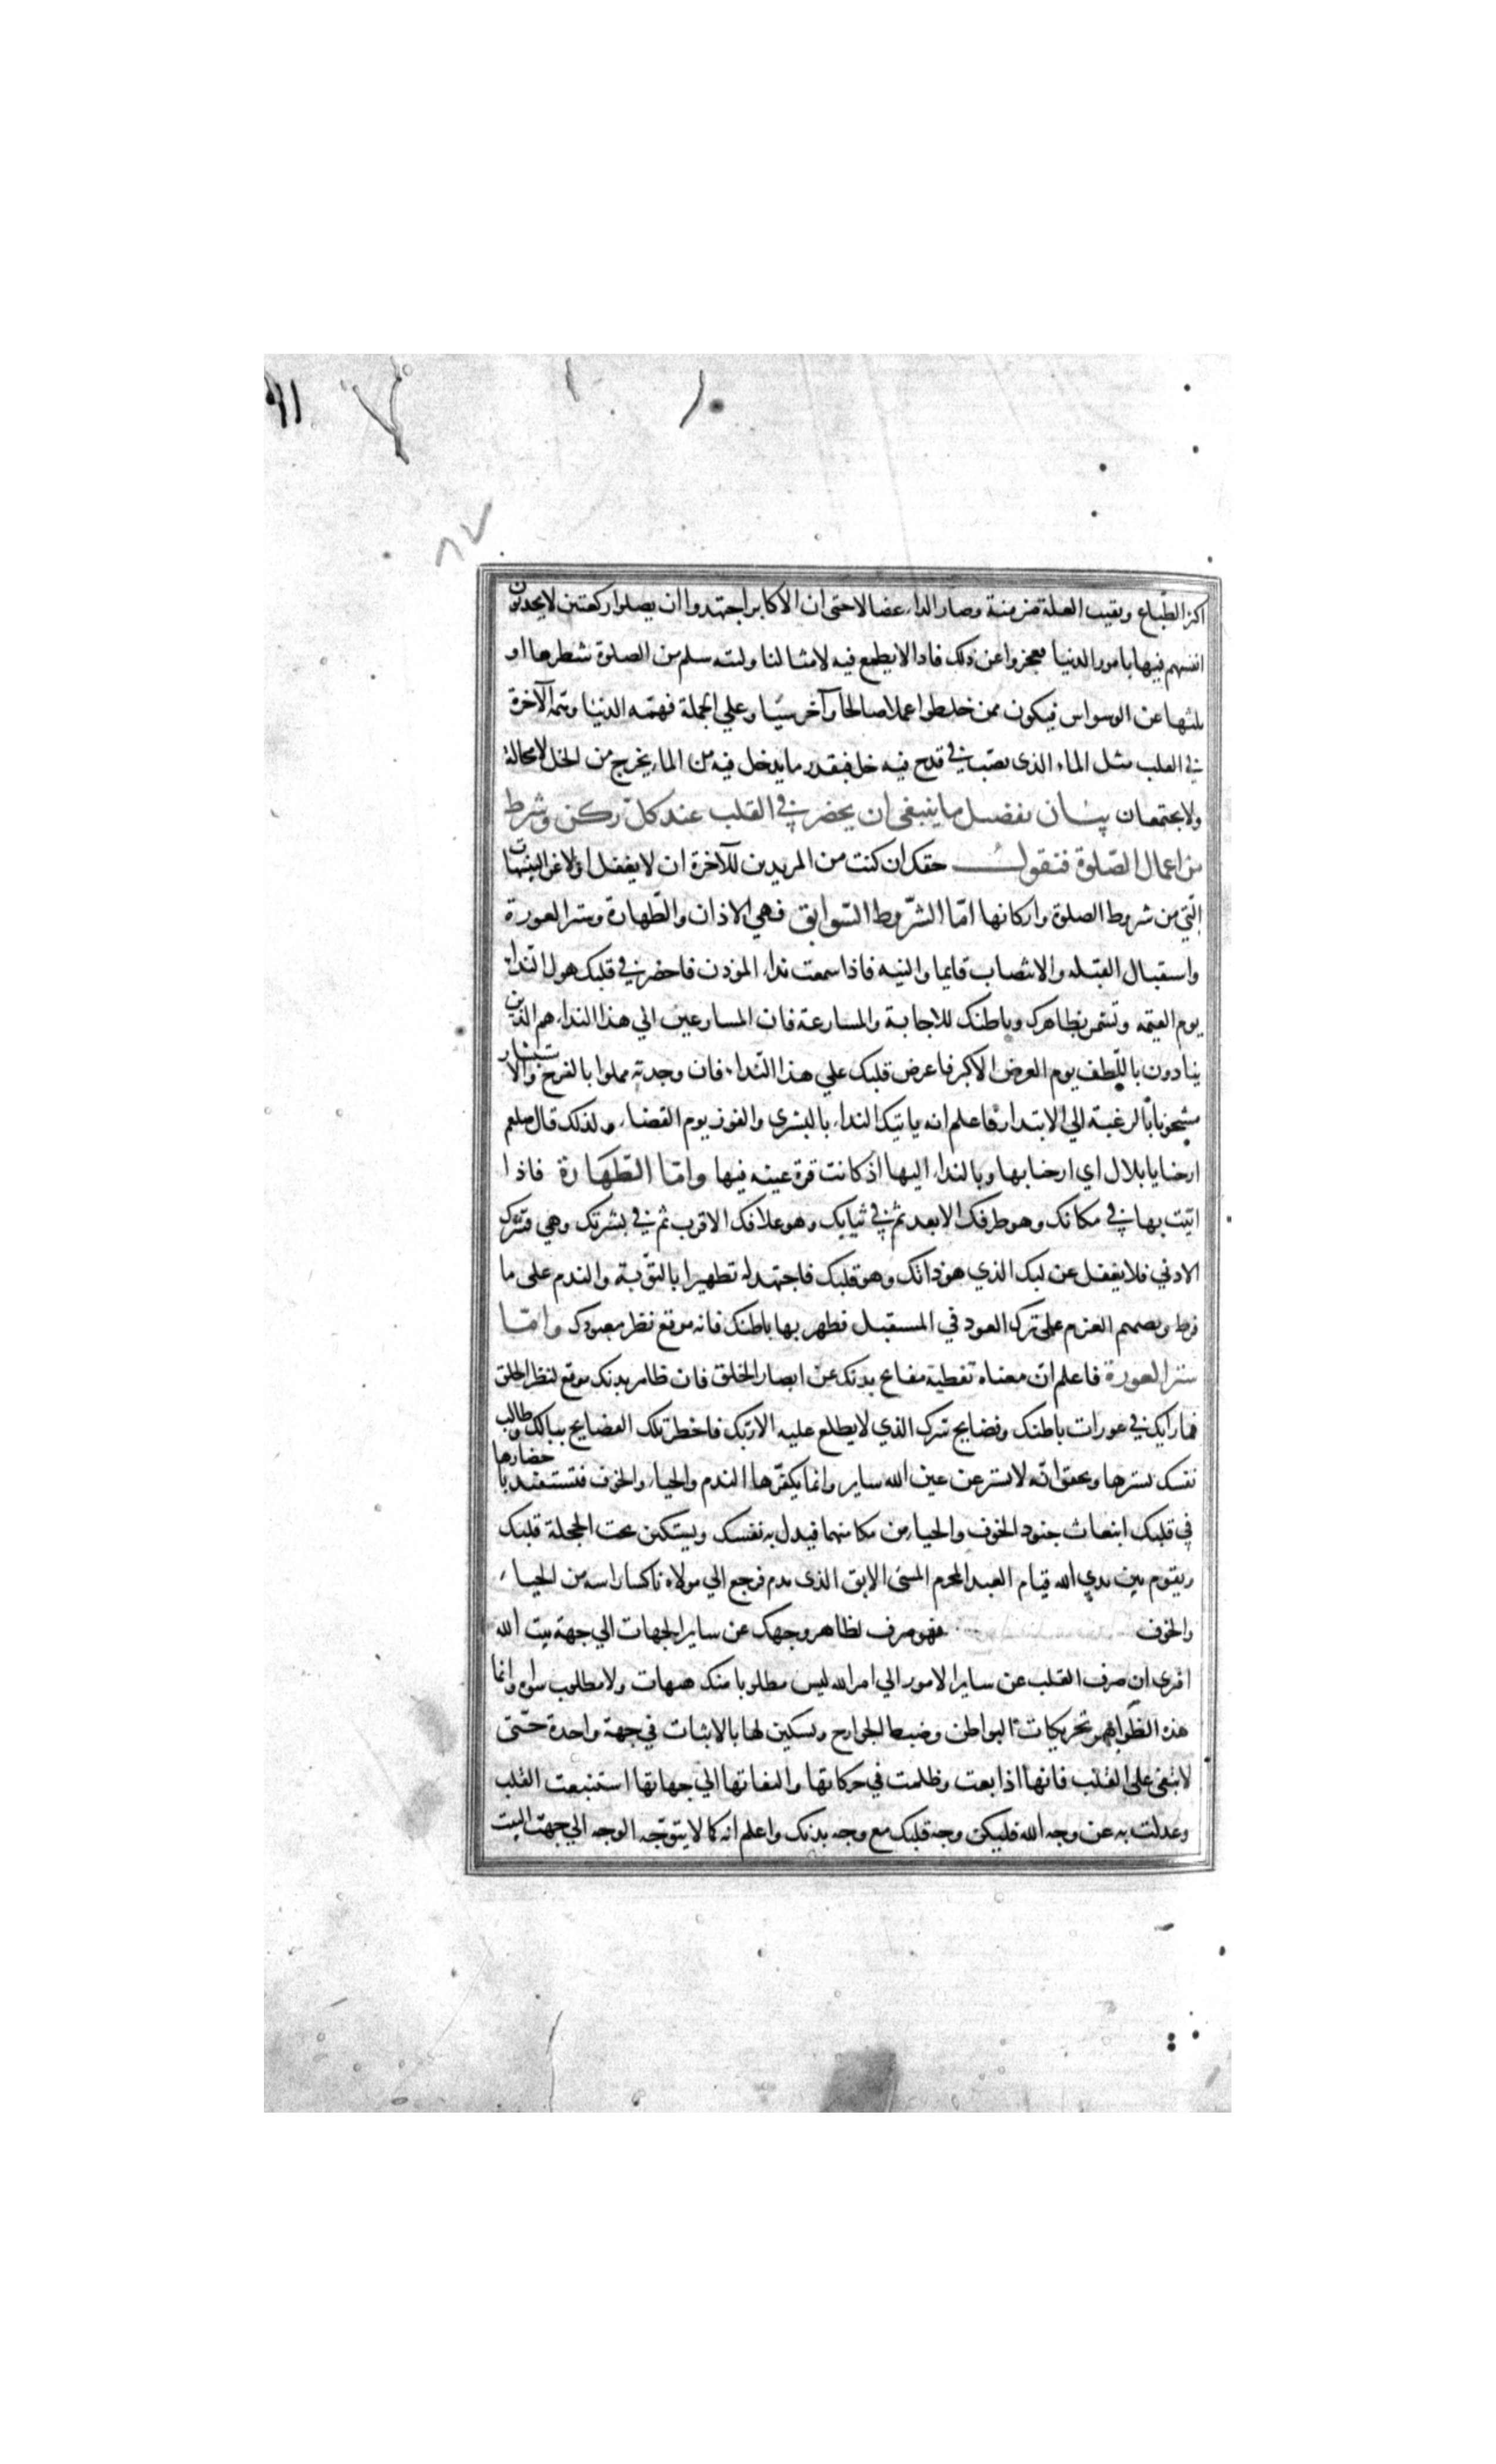 ٩١
٨٧
اكثر الطّباع وبقيت العلة مزمنة وصار الداء عضالا حتى ان الاكابر اجتهدوا ان يصلوا ركعتين لا يحدثون
انفسهم فيها بامور الدنيا فعجزوا عن ذلك فاذا لا يطمع فيه لامثالنا وليته سلم من الصلوة شطرها او
ثلثها عن الوسواس فيكون ممن خلطوا عملا صالحا وآخر سيّيا وعلي الجملة فهمّه الدنيا وهمّة الآخرة
في القلب مثل الماء الذى يصّب في قدح فيه خل فبقدر ما يدخل فيه من الماء يخرج من الخل لا محالة
ولا يجتمعان بيان تفضيل ما ينبغي ان يحضر في القلب عند كل ركن وشرط
من اعمال الصّلوة فنقول حقك ان كنت من المريدين للآخرة ان لا يغفل اولا عن التنبيهات
الّتي من شروط الصلوة واركانها امّا الشّروط السّوابق فهي الاذان والطّهارة وستر العورة
واستقبال القبله والانتصاب قايما والنيه فاذا سمعت نداء المؤذن فاحضر في قلبك هول النّداء
يوم القيمة وتشمر بظاهرك وباطنك للاجابة والمسارعة فان المسارعين الي هذا النداء هم الذين
ينادون باللّطف يوم العرض الاكبر فاعرض قلبك علي هذا النّداء فان وجدته مملوا بالفرح والاستبشار
مشحونا بالرغبة الي الابتدار فاعلم انه ياتيك النداء بالبشرى والفوز يوم القضاء ولذلك قال صلعم
ارحنا يا بلال اي ارحنا بها وبالنداء اليها اذ كانت قرة عينه فيها وامّا الطّهارة فاذا
اتيت بها في مكانك وهو طرفك الابعد ثم في ثيابك وهو غلافك الاقرب ثم في بشرتك وهي قشرك
الادني فلا يغفل عن لبك الذي هو ذاتك وهو قلبك فاجتهد له تطهيرا بالتّوبة والندم على ما
فرط وتصميم العزم على ترك العود في المستقبل فطهر بها باطنك فانه موقع نظر معبودك وامّا
ستر العورة فاعلم انّ معناه تغطية مقابح بدنك عن ابصار الخلق فان ظاهر بدنك موقع لنظر الخلق
فما رايك في عورات باطنك وفضايح سرك الذي لا يطلع عليه الا ربّك فاخطر تلك الفضايح ببالك وطالب
نفسك بسترها وتحقق انّه لا يستر عن عين الله ساير وانما يكفّرها الندم والحياء والخوف فتستفيد باحضارها
في قلبك ابنعاث جنود الخوف والحياء من مكامنهما فيدل به نفسك ويستكين تحت الخجلة قلبك
ويقوم بين يدي الله قيام العبد المجرم المسئ الابق الذى ندم فرجع الي مولاه ناكسا راسه من الحياء
والخوف فهو صرف لظاهر وجهك عن ساير الجهات الي جهة بيت الله
افترى ان صرف القلب عن ساير الامور الي امر الله ليس مطلوبا منك هيهات ولا مطلوب سواه وانما
هذه الظّواهر تحريكات البواطن وضبط الجوارح وتسكين لها بالاثبات في جهة واحدة حتّى
لا تبغى على القلب فانها اذا بغت وظلمت في حركاتها والتفاتها الي جهاتها استتبعت القلب
وعدلت به عن وجه الله فليكن وجه قلبك مع وجه بدنك واعلم انه كما لا يتوجّه الوجه الي جهت البيت